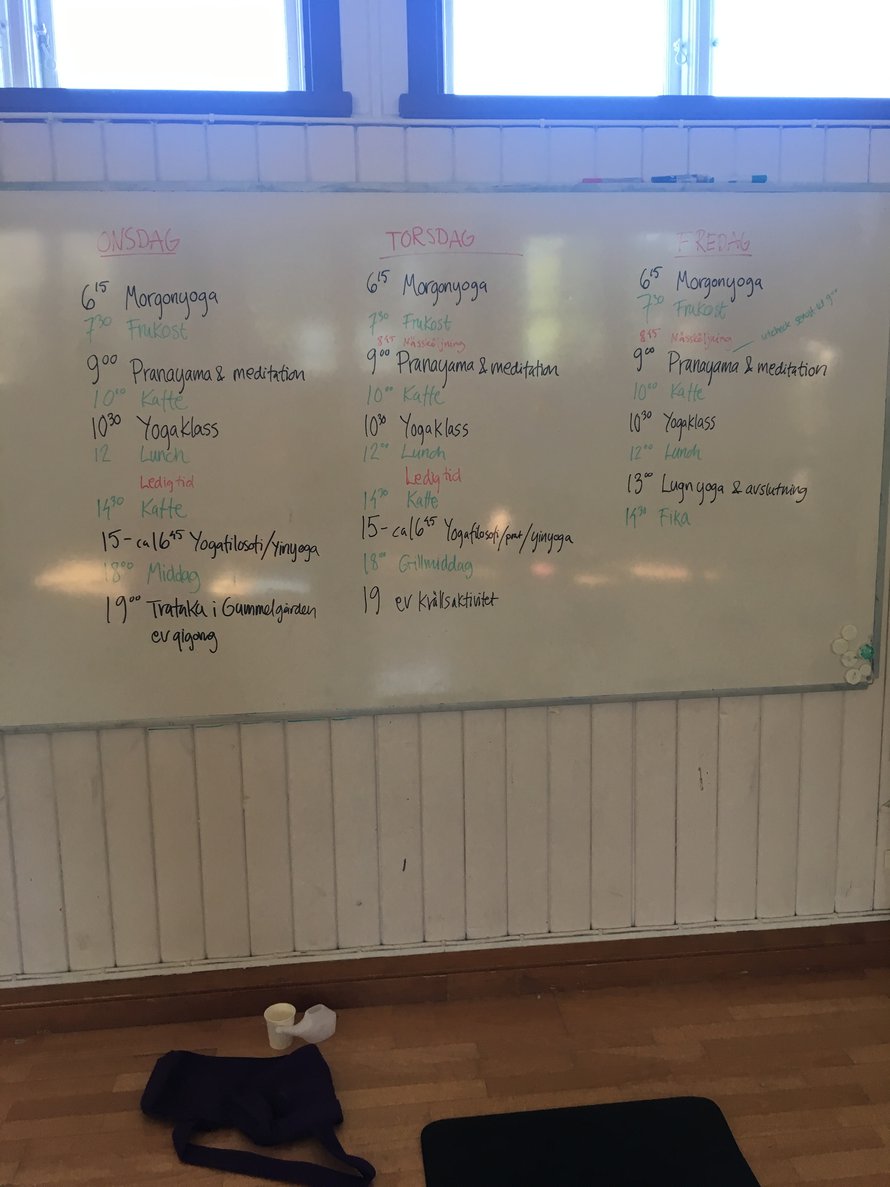 ONSDAG
6¹⁵ Morgonyoga
7³⁰ Frukost
9⁰⁰ Pranayama & meditation
10⁰⁰ Kaffe
10³⁰ Yogaklass
12 Lunch
Ledig tid
14³⁰ Kaffe
15 - ca 16⁴⁵ Yogafilosofi/yinyoga
18⁰⁰ Middag
19⁰⁰ Trataka i Gammelgården
ev qigong
TORSDAG
6¹⁵ Morgonyoga
7³⁰ Frukost
8⁴⁵ Nässköljning
9⁰⁰ Pranayama & meditation
10⁰⁰ Kaffe
10³⁰ Yogaklass
12⁰⁰ Lunch
Ledig tid
14³⁰ Kaffe
15 - ca 16⁴⁵ Yogafilosofi/prat/yinyoga
18⁰⁰ Grillmiddag
19 ev kvällsaktivitet
FREDAG
6¹⁵ Morgonyoga
7³⁰ Frukost
utcheck senast kl 9⁰⁰
8⁴⁵ Nässköljning
9⁰⁰ Pranayama & meditation
10⁰⁰ Kaffe
10³⁰ Yogaklass
12⁰⁰ Lunch
13⁰⁰ Lugn yoga & avslutning
14³⁰ Fika